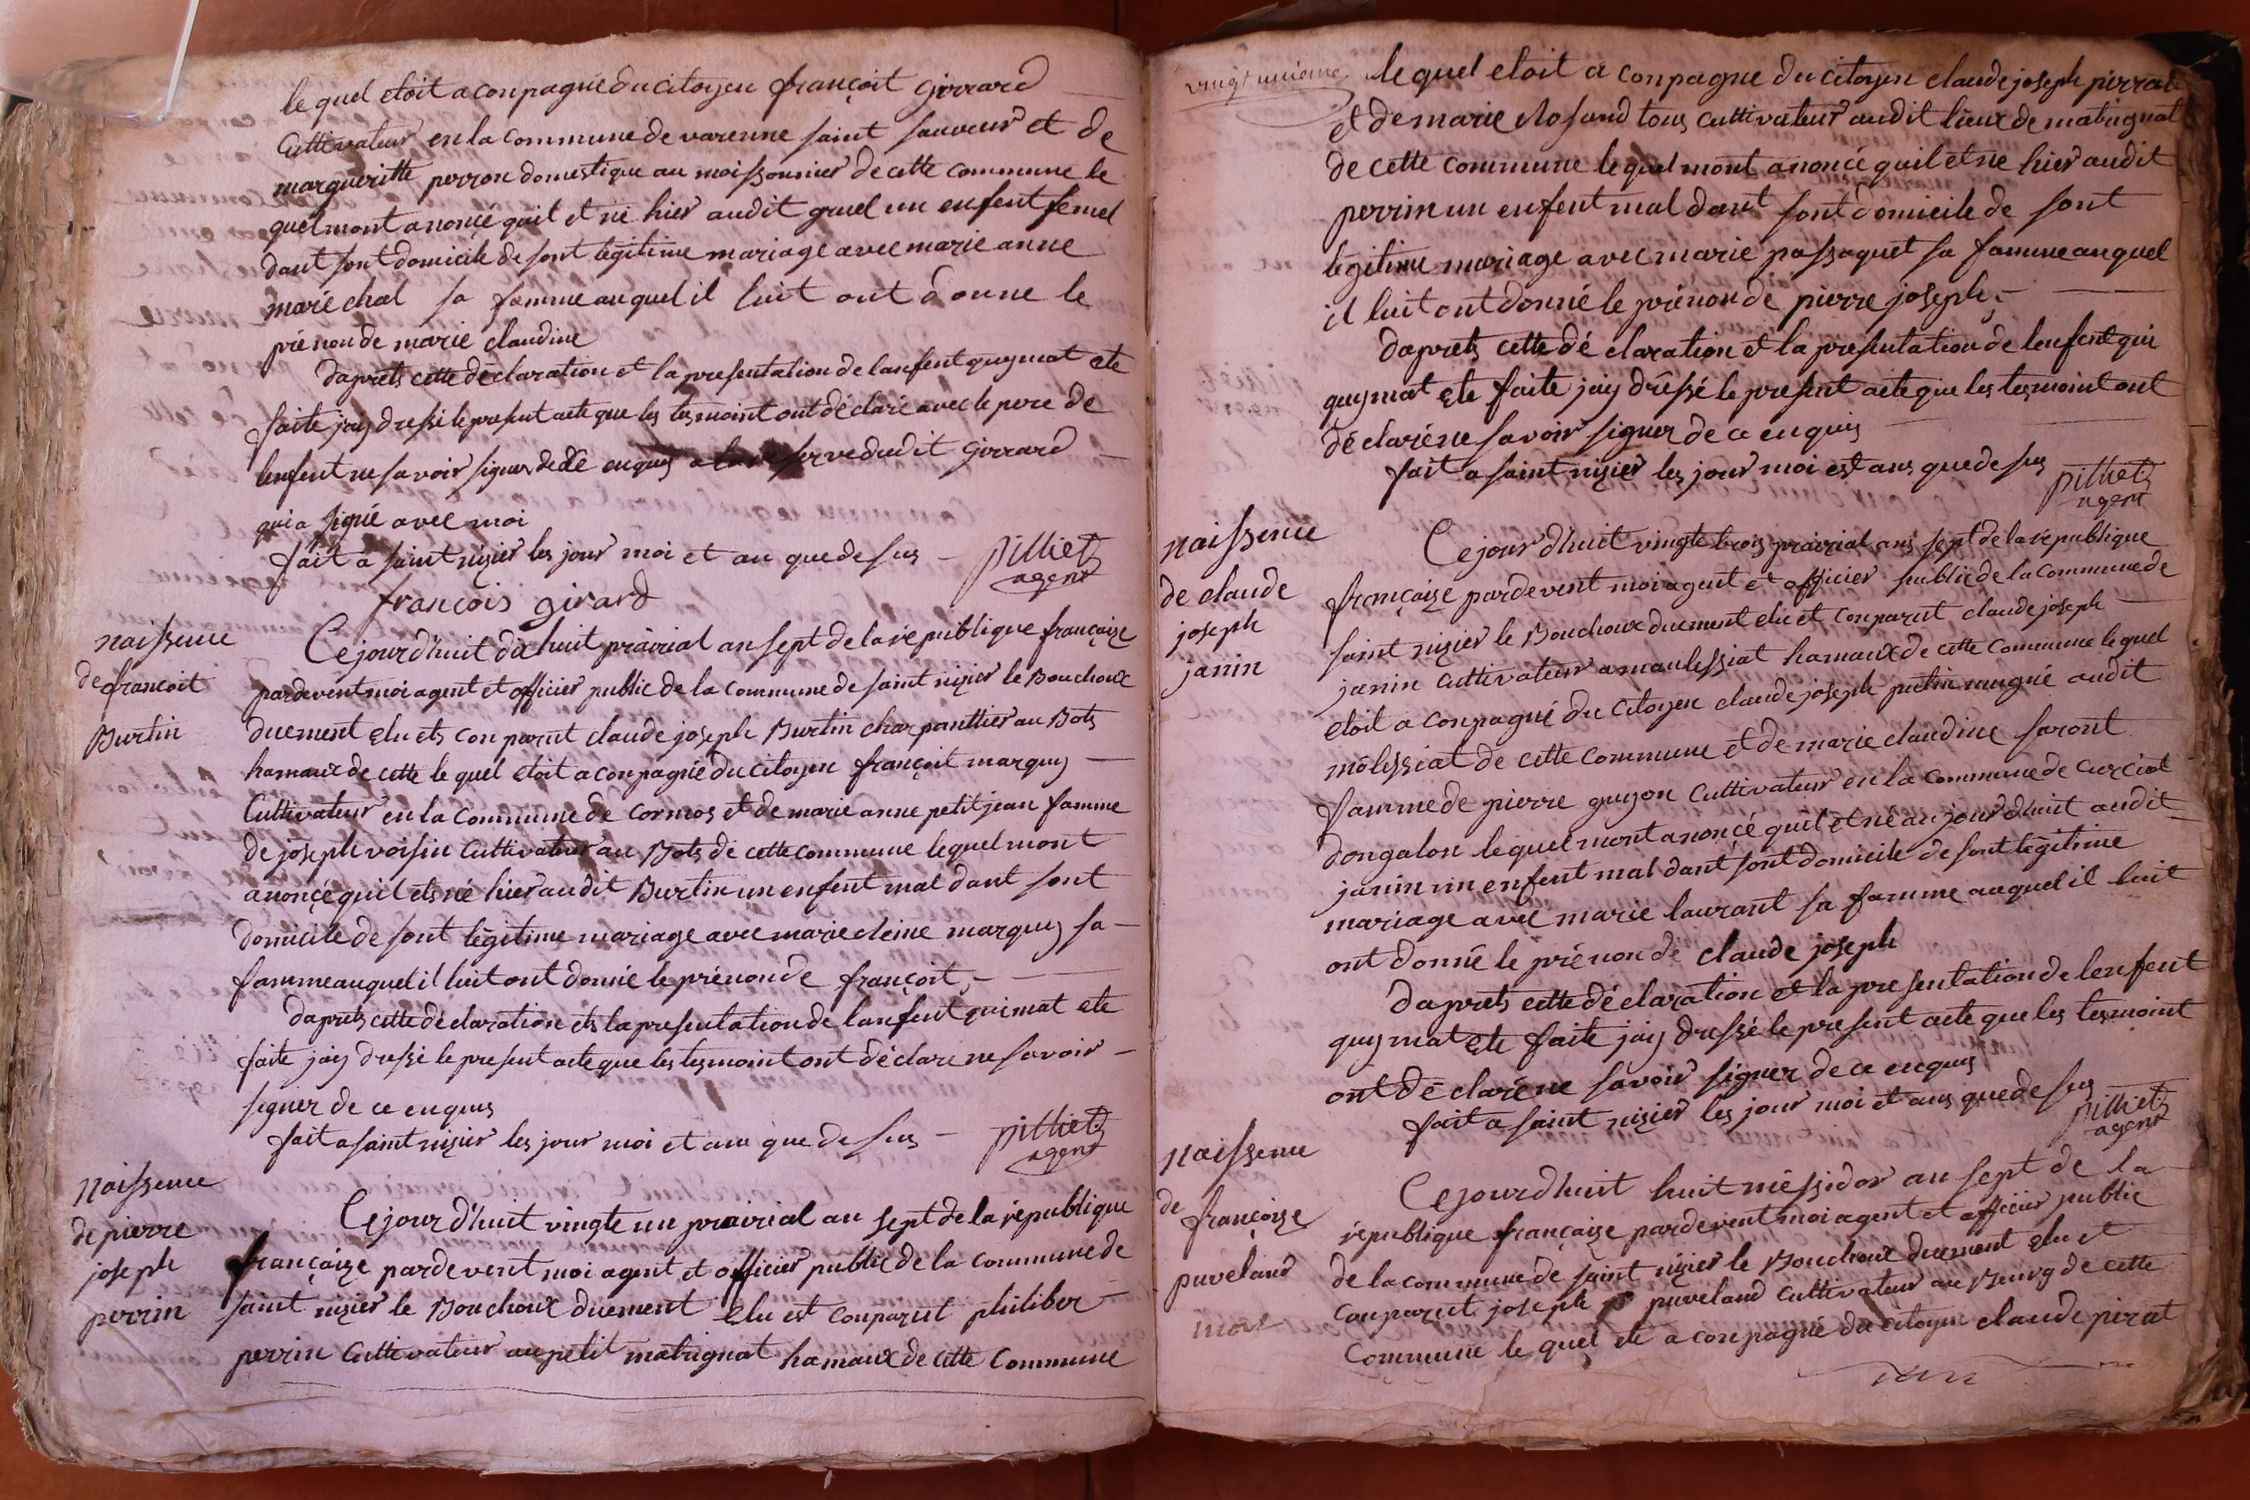 le quel etoit a conpagné du citoyen françoit girrard
Cultivateur en la commune de varenne saint sauveur et de
margueritte perron domestique au moissonnier de cette commune le
quel mont anoncé quil et né hier audit gruel un enfent femel
dant sont domicile de sont légitime mariage avec marie anne
maréchal sa famme auquel il luit ont donne le
prénon de marie claudine
daprets cette déclaration et la presentation de lanfent quy mat ete
faite jaiy dressé le present acte que les tesmoint ont déclaré avec le pere de
lenfent ne savoir signer de ce enquis a la reserve dudit girrard
qui a signé avec moi
fait a saint nizier les jour moi et an que desus
pilliet
agent
françois girard
naissence
de françoit
Burtin
Ce jourd'huit dix huit prairial an sept de la république françaize
pardevent moi agent et officier public de la commune de saint nizier le Bouchoux
duement elu ets conparut claude joseph Burtin charpanttier au Bots
hamaux de cette le quel etoit a conpagné du citoyen françoit marquy
Cultivateur en la commune de cormos et de marie anne petitjean famme
de joseph voisin cultivateur au Bots de cette commune lequel mont
anoncé quil ets né hier audit Burtin un enfent mal dant sont
domicile de sont légitime mariage avec marie cleine marquy sa
famme auquel il luit ont donné le prénon de françoit
daprets cette déclaration ets la presentation de lanfent qui mat ete
faite jaiy dressé le present acte que les tesmoint ont déclare ne savoir
signer de ce enquis
fait a saint nizier les jour moi et ans que de sus
pilliet
agent
naissence
de pierre
joseph
perrin
Ce jourd'huit vingte un prairial an sept de la république
françaize pardevent moi agent et officier public de la commune de
saint nizier le Bouchoux duement elu est conparut philiber
perrin cultivateur au petit matrignat hamaux de cette commune
vingt unieme
le quel etoit a conpagné du citoyen claude joseph pirrat
et de marie closand tous cultivateur audit lieux de matrignat
de cette commune le quel mont anoncé quil et né hier audit
perrin un enfent mal dant sont domicile de sont
légitime mariage avec marie passaquet sa famme auquel
il luit ont donné le prénon de pierre joseph
daprets cette déclaration et la presentation de lenfent qui
quy mat ete faite jaiy dressé le present acte que les tesmoint ont
déclaré ne savoir signer de ce enquis
fait a saint nizier les jour moi est ans que de sus
pilliet
agent
naissence
de claude
joseph
janin
Ce jour d'huit vingte trois prairial ans sept de la république
françaize pardevent moi agent et officier public de la commune de
saint nizier le Bouchoux duement elu et conparut claude joseph
janin cultivateur a maulissiat hamaux de cette commune le quel
etoit a conpagné du citoyen claude joseph putin mugné audit
molissiat de cette commune et de marie claudine faront
famme de pierre guyon cultivateur en la commune de curciat
dongalon le quel mont anoncé quil et né au jourd'huit audit
janin un enfent mal dant sont domicile de sont légitime
mariage avec marie laurant sa famme auquel il luit
ont donné le prénon de claude joseph
daprets cette déclaration et la presentation de lenfent
quy mat ete faite jaiy dressé le present acte que les tesmoint
ont déclaré ne savoir signer de ce enquis
fait a saint nizier les jour moi et ans que de sus
pilliet
agent
naissence
de
françoize
puveland
mort
Ce jourd'huit huit méssidor an sept de la
république françaize pardevent moi agent et officier public
de la commune de saint nizier le Bouchoux duement elu et
conparut joseph puveland cultivateur au Bourg de cette
commune le quel ete a conpagné du citoyen claude pirat